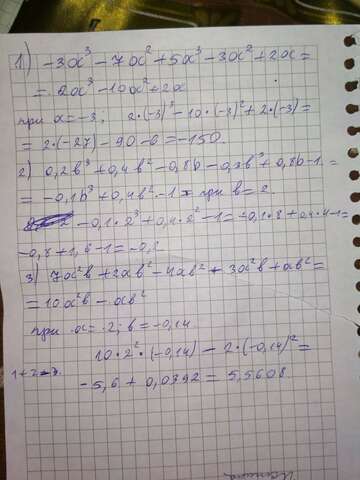 1) -3a³ - 7a² + 5a³ - 3a² + 2a =
= 2a³ - 10a² + 2a
при a = -3; 2·(-3)³ - 10·(-3)² + 2·(-3) =
= 2·(-27) - 90 - 6 = -150.
2) 0,2b³ + 0,4b² - 0,8b - 0,3b³ + 0,8b - 1 =
= -0,1b³ + 0,4b² - 1 при b = 2
-0,1·2³ + 0,4·2² - 1 = -0,1·8 + 0,4·4 - 1 =
-0,8 + 1,6 - 1 = -0,2
3) 7a²b + 2ab² - 4ab² + 3a²b + ab² =
= 10a²b - ab²
при a = 2; b = -0,14
10·2²·(-0,14) - 2·(-0,14)² =
1+2=3
-5,6 + 0,0392 = 5,5608